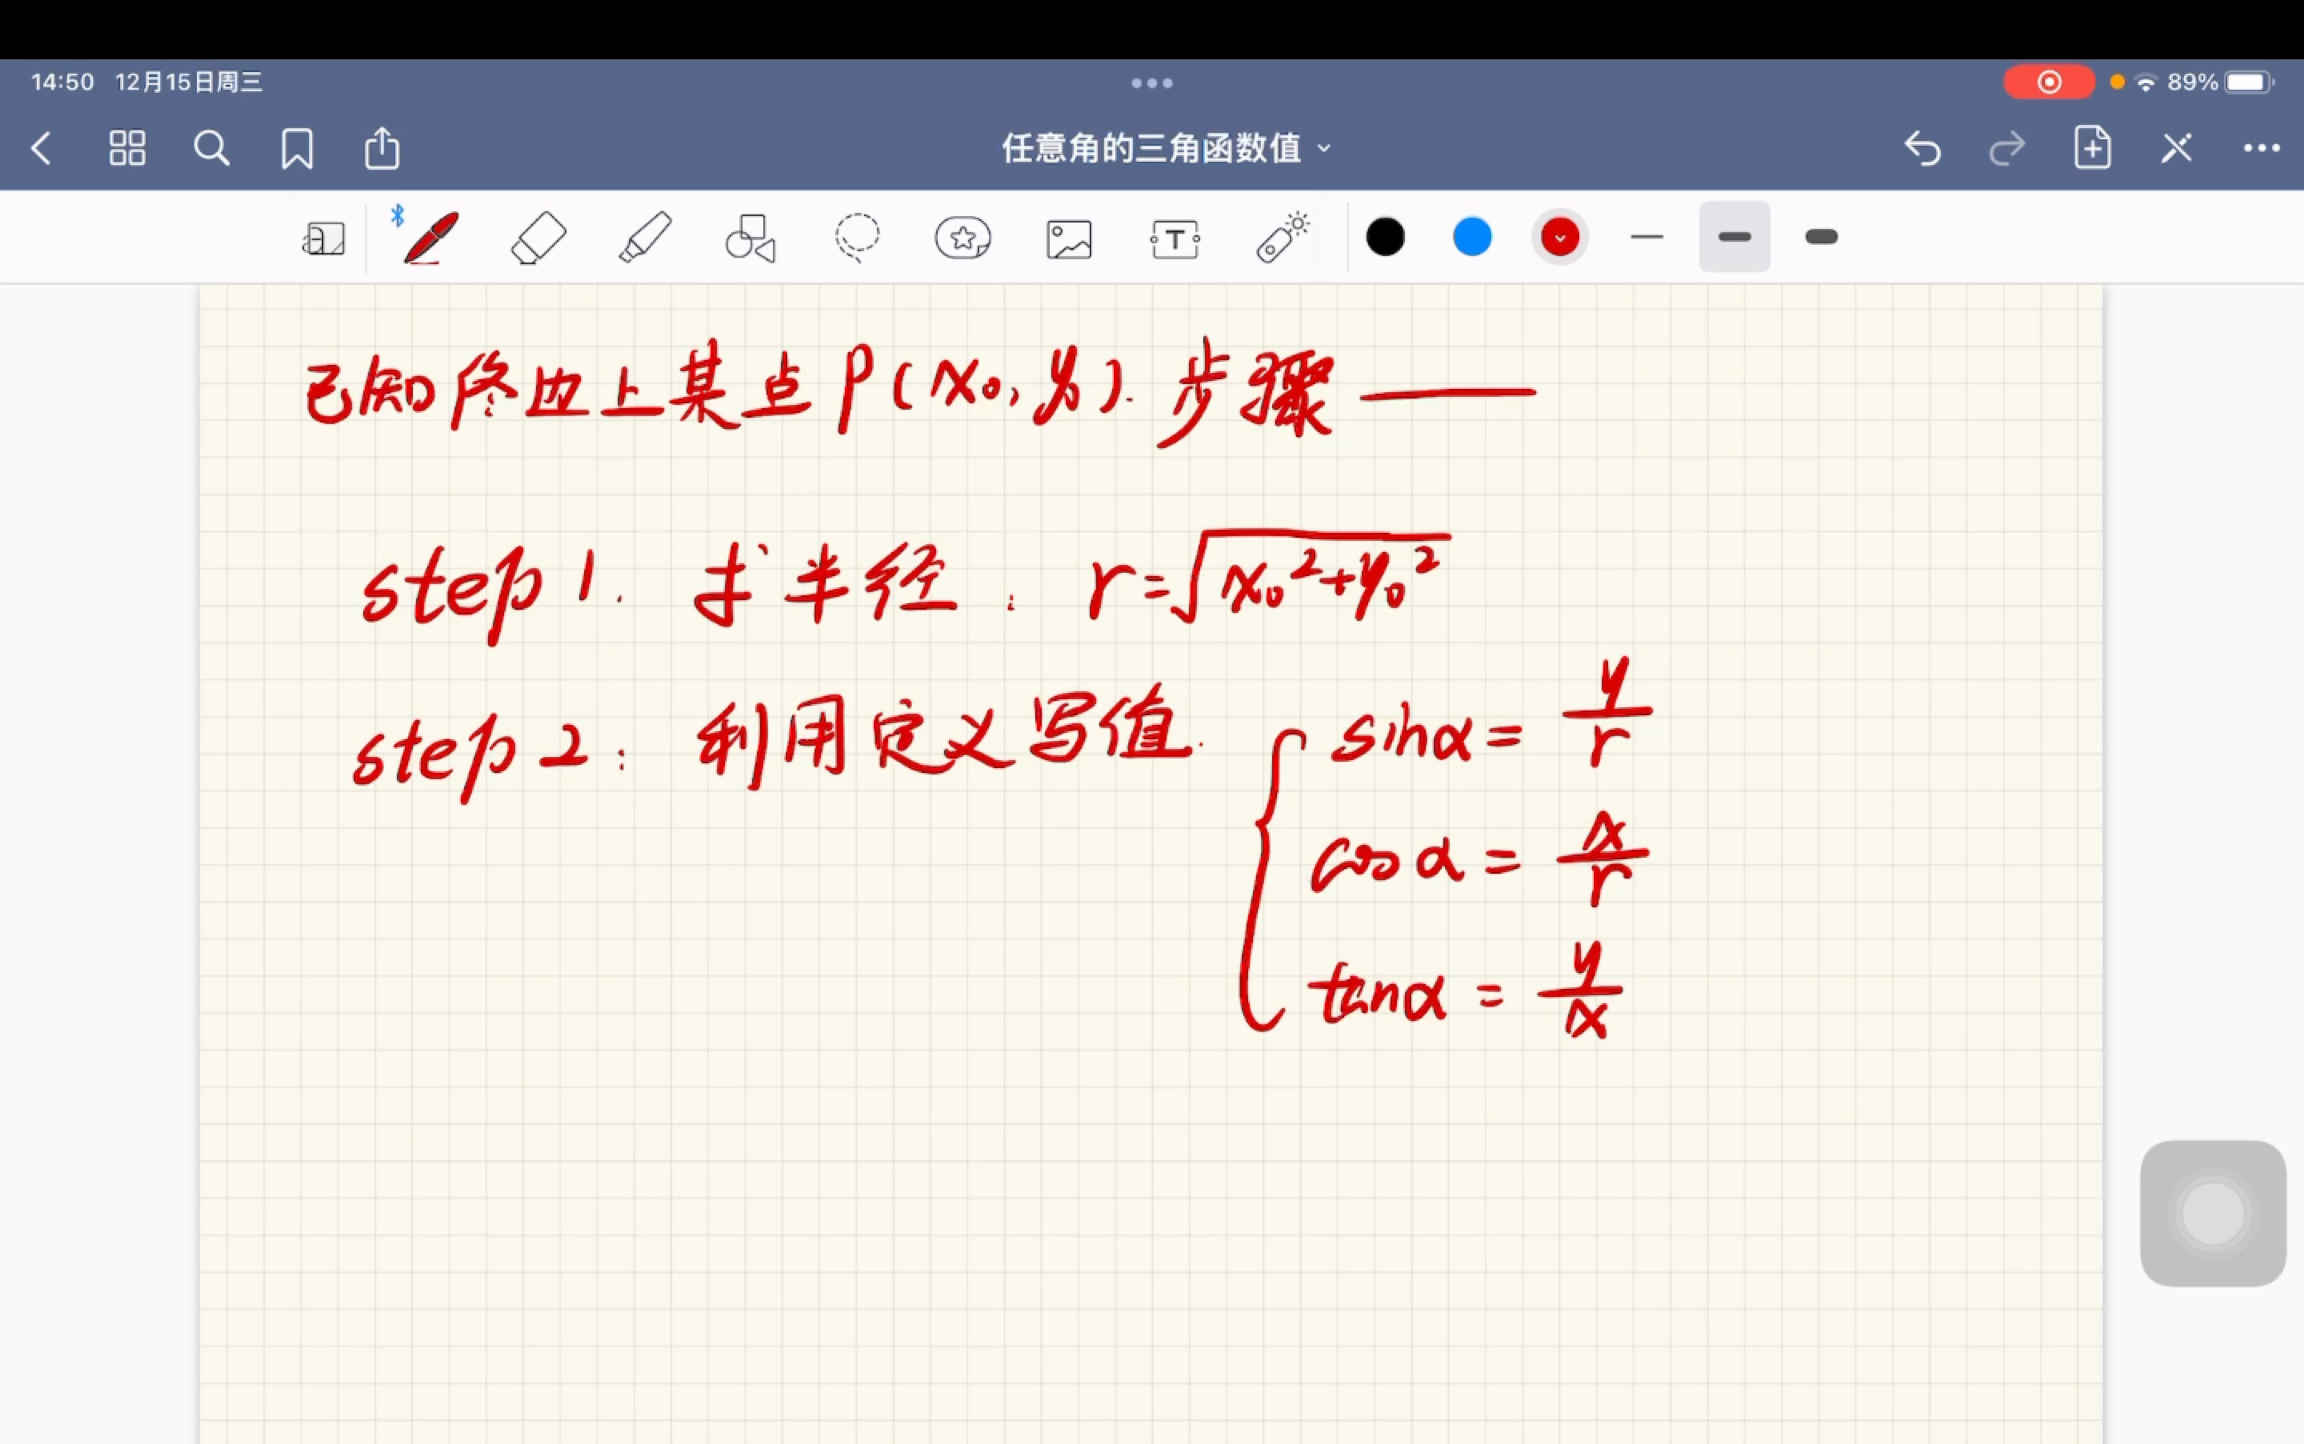 14:50 12月15日周三 89%
任意角的三角函数值
已知终边上某点P(x₀,y₀).步骤——
step 1. 求半径: r=√(x₀²+y₀²)
step 2: 利用定义写值.
sinα = y/r
cosα = x/r
tanα = y/x